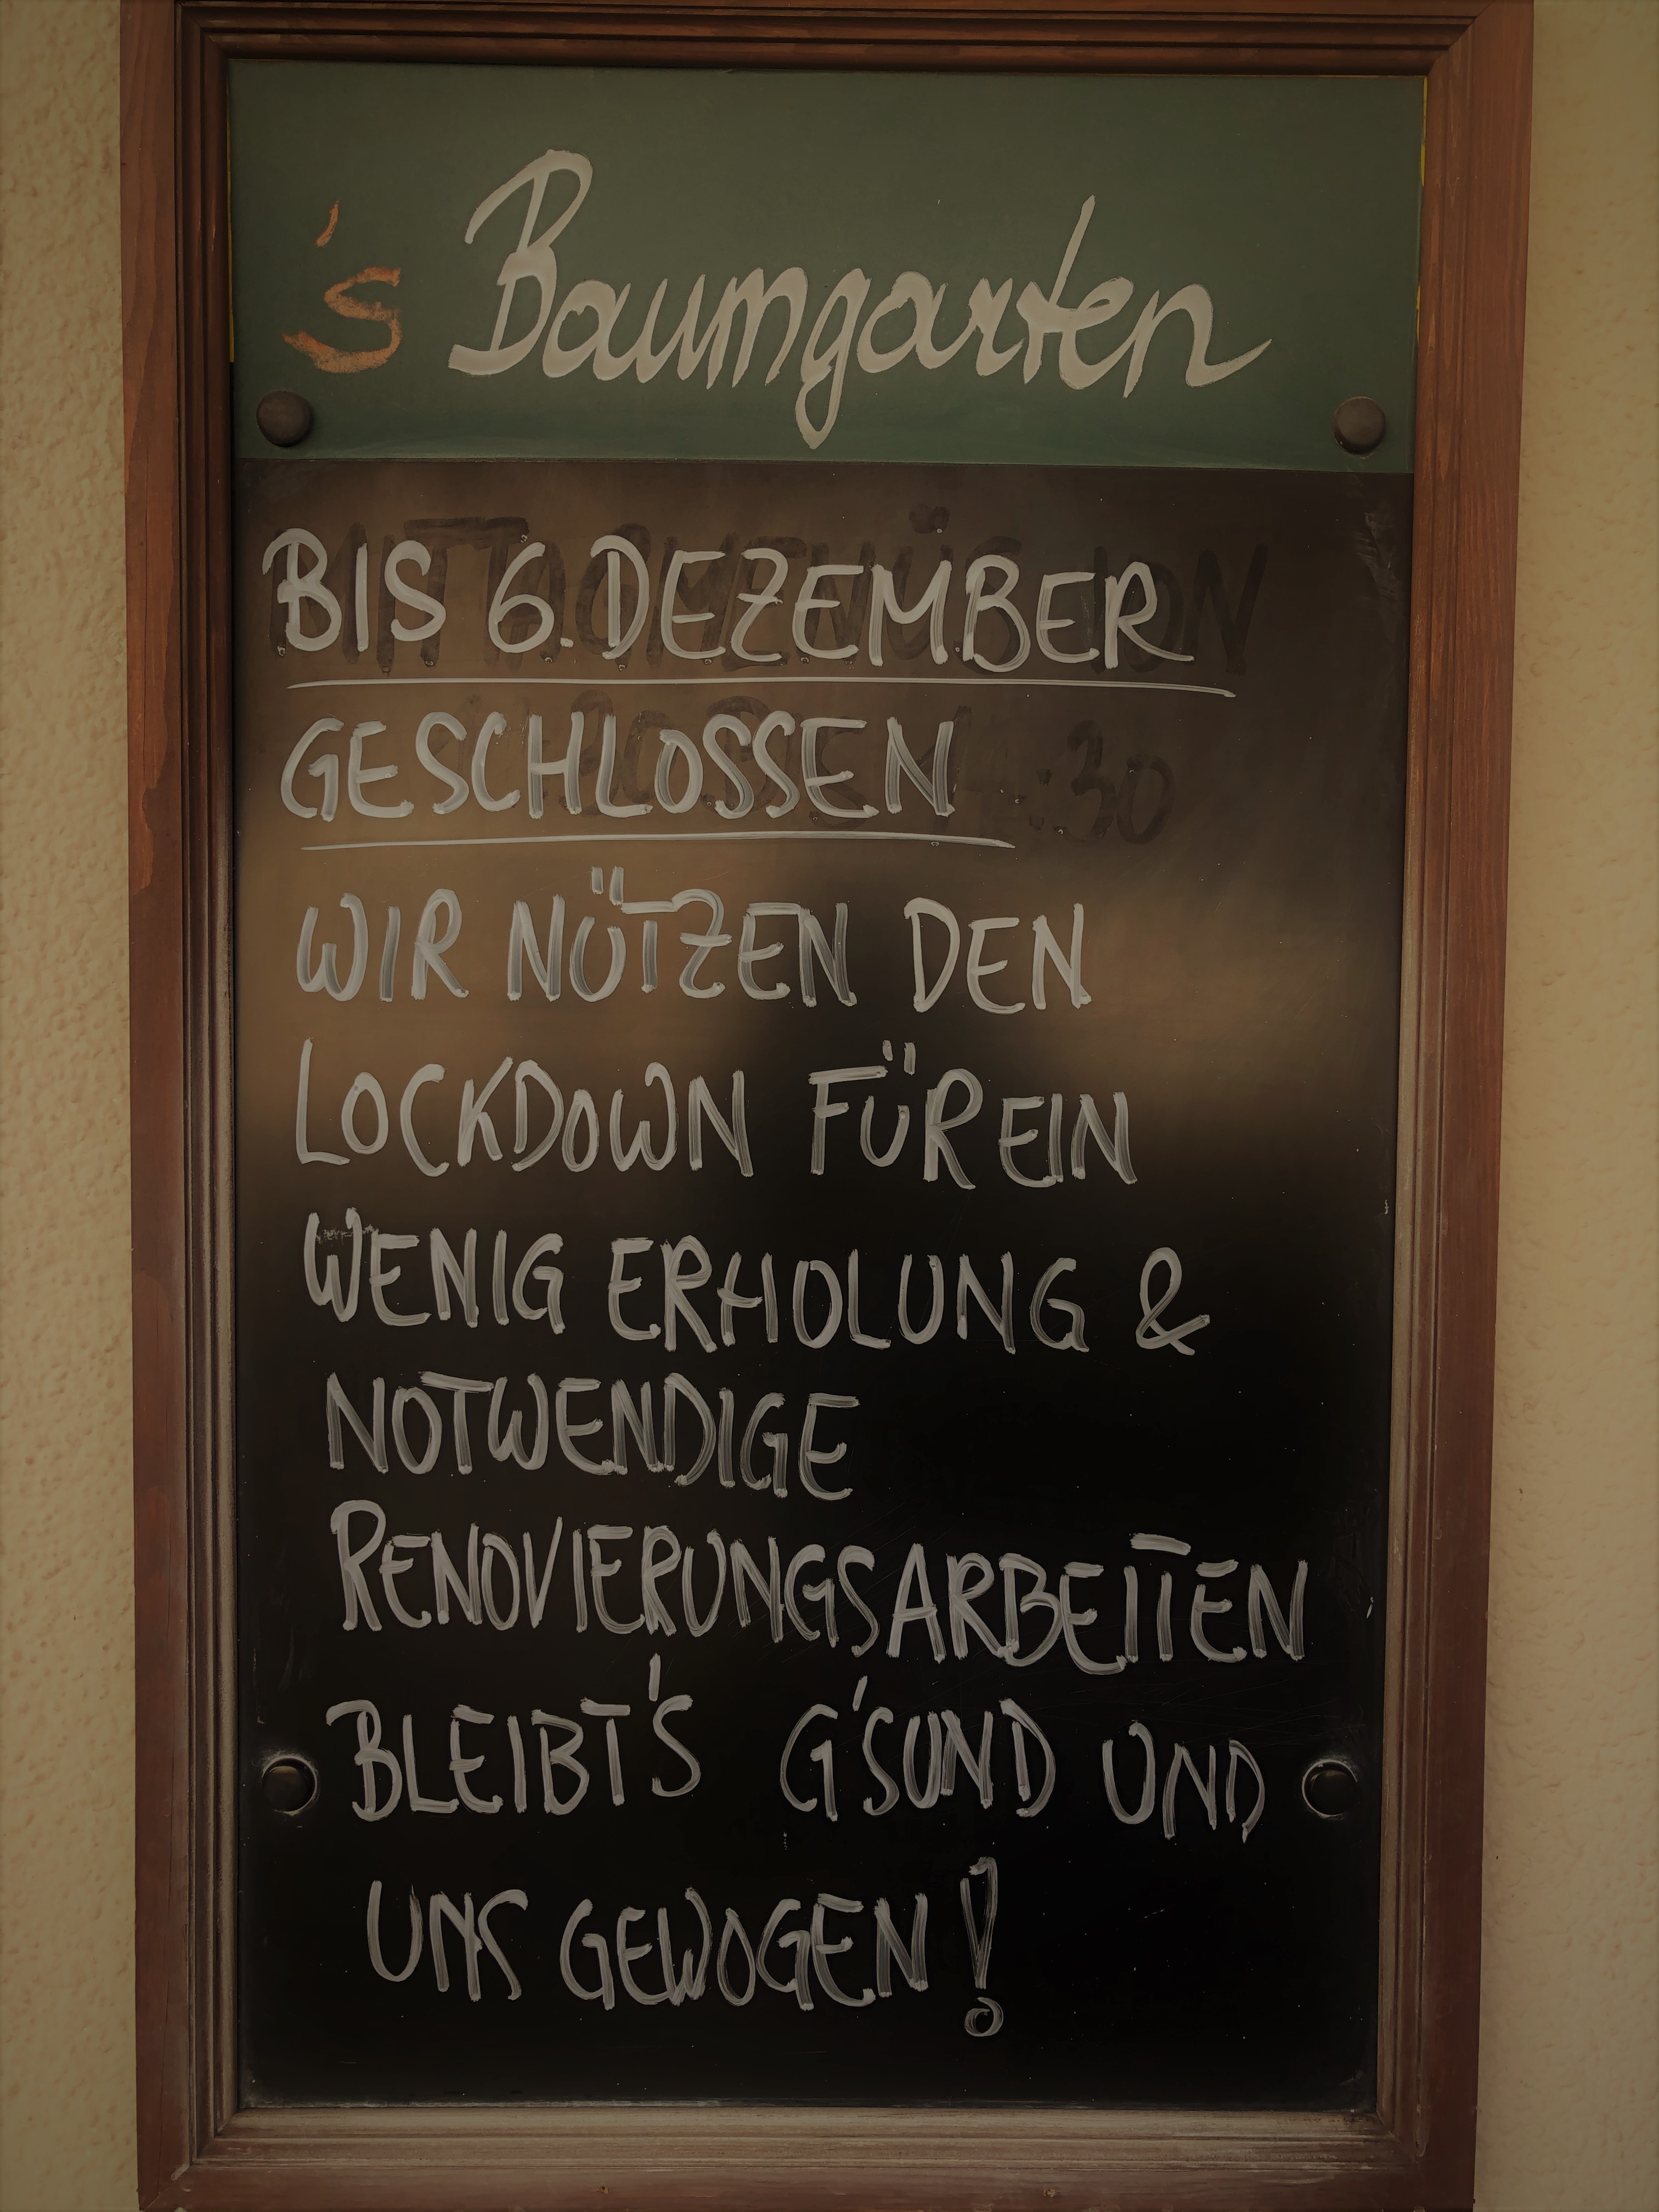 's Baumgarten
BIS 6. DEZEMBER
GESCHLOSSEN
WIR NÜTZEN DEN
LOCKDOWN FÜR EIN
WENIG ERHOLUNG &
NOTWENDIGE
RENOVIERUNGSARBEITEN
BLEIBT'S G'SUND UND
UNS GEWOGEN!